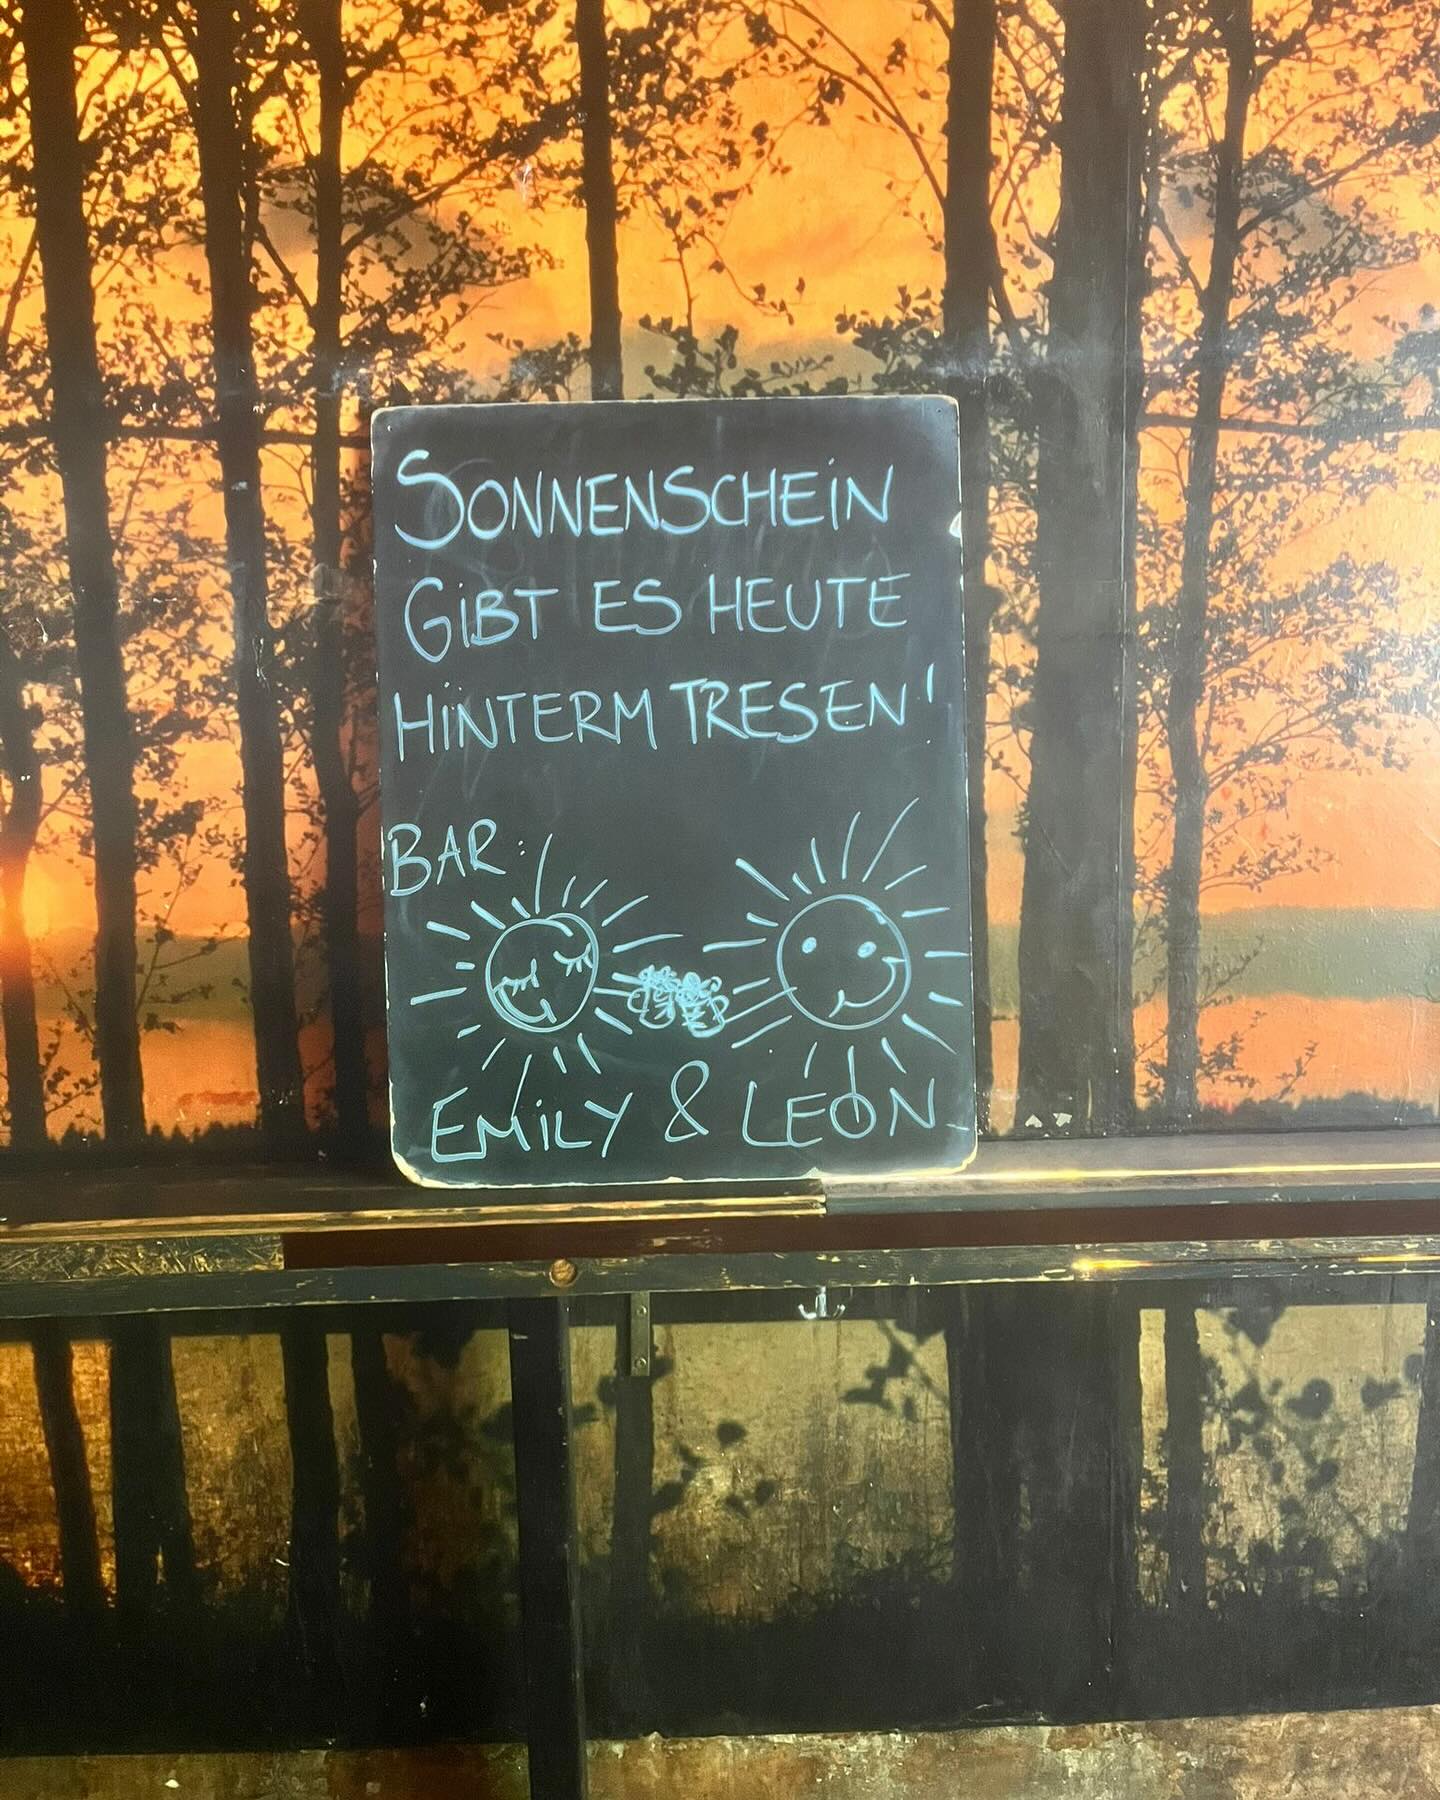 SONNENSCHEIN
GIBT ES HEUTE
HINTERM TRESEN!
BAR:
EMILY & LEON